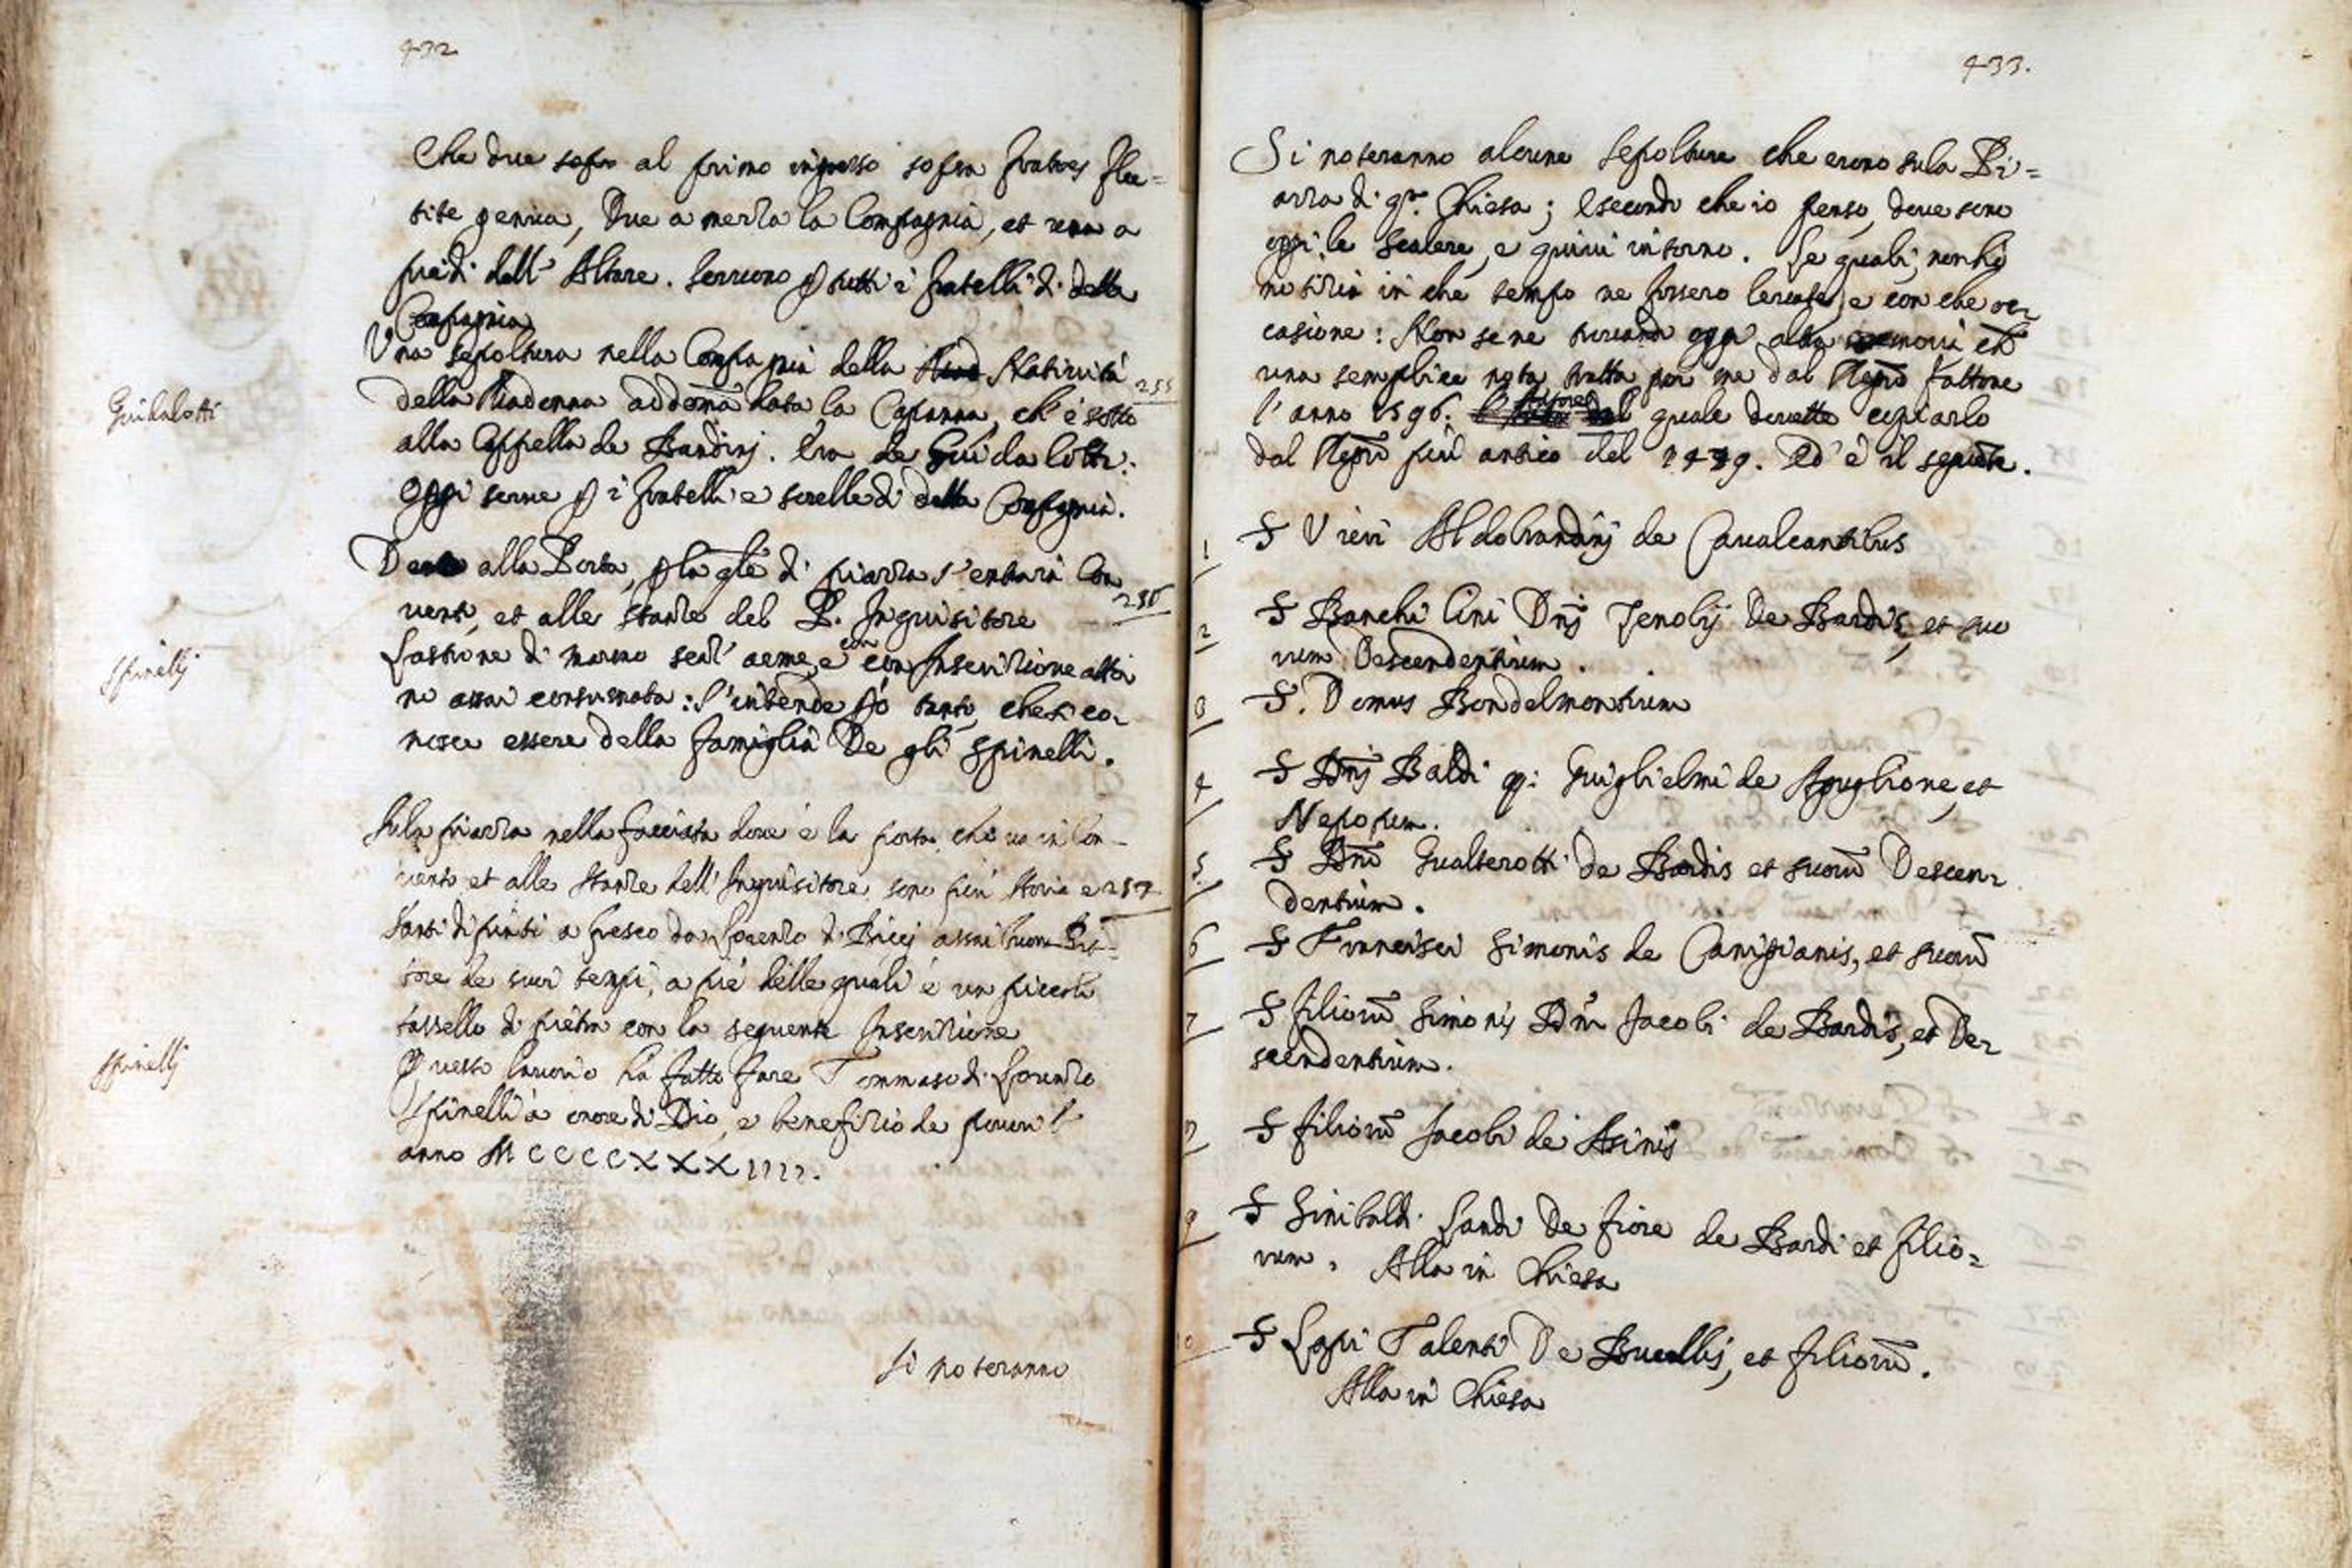 432
Che due sopra al primo ingresso sopra fratres Flec-
tite genua, Due a mezza la Compagnia, et una a
piedi dell' Altare. Servono p tutti i fratelli di detta
Compagnia
Una sepoltura nella Compagnia della Natività
255
della Madonna addomãdata la Capanna, ch' è sotto
Guidalotti
alla Cappella de Bardini. Era de Guidalotti:
Oggi serve p i fratelli e sorelle di detta Compagnia.
alla Porta, p la qle di piazza s' entra in Con
256
vento, et alle stanze del P. Inquisitore
Spinelli
Lastrone di marmo senz' arme, e con Inscrizione atto
no assai consumata: s' intende pò tanto, che si co-
nosce essere della famiglia De gli Spinelli.
Sula piazza nella facciata dove è la porta, che va in Con-
vento et alle stanze dell' Inquisitore, sono più storie e 257
santi dipinti a fresco da Lorenzo di Bicci assai buon Pit-
tore de suoi tempi, a piè delle quali è un piccolo
tassello di pietra con la seguente Inscrizione
Spinelli
Questo lavorio ha fatto fare Tommaso di Lorenzo
Spinelli a onore di Dio, e benefizio de poveri l'
anno MCCCCXXXIIII.
Si noteranno
433.
Si noteranno alcune sepolture che erono sula Pi=
azza di qta Chiesa; e secondo che io penso, dove sono
oggi le scalere, e quivi intorno. Le quali, non hò
notizia in che tempo ne fossero levate, e con che oc-
casione: Non se ne trovando oggi altra memoria che
una semplice nota tratta per me dal Regrõ fattone
l' anno 1596. quale dovette copiarlo
dal Regrõ più antico del 1439. Ed' è il seguẽte.
1 S Vieri Aldobrandinj de Cavalcantibus
2 S Banchi Cini Dnj Jenobij De Bardis, et suo
rum Descendentium.
3 S. Domus Bondelmontium
4 S Dnj Baldi q: Guiglielmi de Aguglione, et
Nepotum.
5. S Dni Gualterotti de Bardis et suorũ Descen-
dentium.
6 S Francisci Simonis de Canigianis, et suorũ
7 S filiorũ Simonis Dni Jacobi de Bardis, et De-
scendentium.
8 S filiorũ Jacobi de Asinis
9 S Sinibaldi Landi De Fiore de Bardi et filio=
rum. Alla in Chiesa
S Lapi Talenti De Bucellis, et filiorũ.
Alla in Chiesa